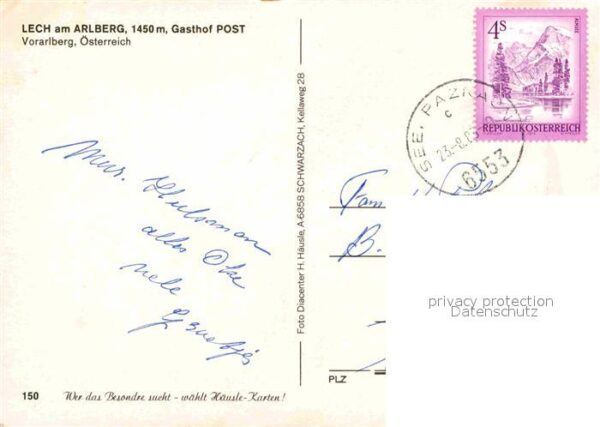 LECH am ARLBERG, 1450 m, Gasthof POST
Vorarlberg, Österreich
4s
ALMSEE
REPUBLIK ÖSTERREICH
SEE, PAZNA
c
23.-8.
6553
Foto Diacenter H. Häusle, A-6858 SCHWARZACH, Kellaweg 28
alles Oke
vele
Groetjes
Fam
B.
privacy protection
Datenschutz
PLZ
150 Wer das Besondre sucht - wählt Häusle-Karten!